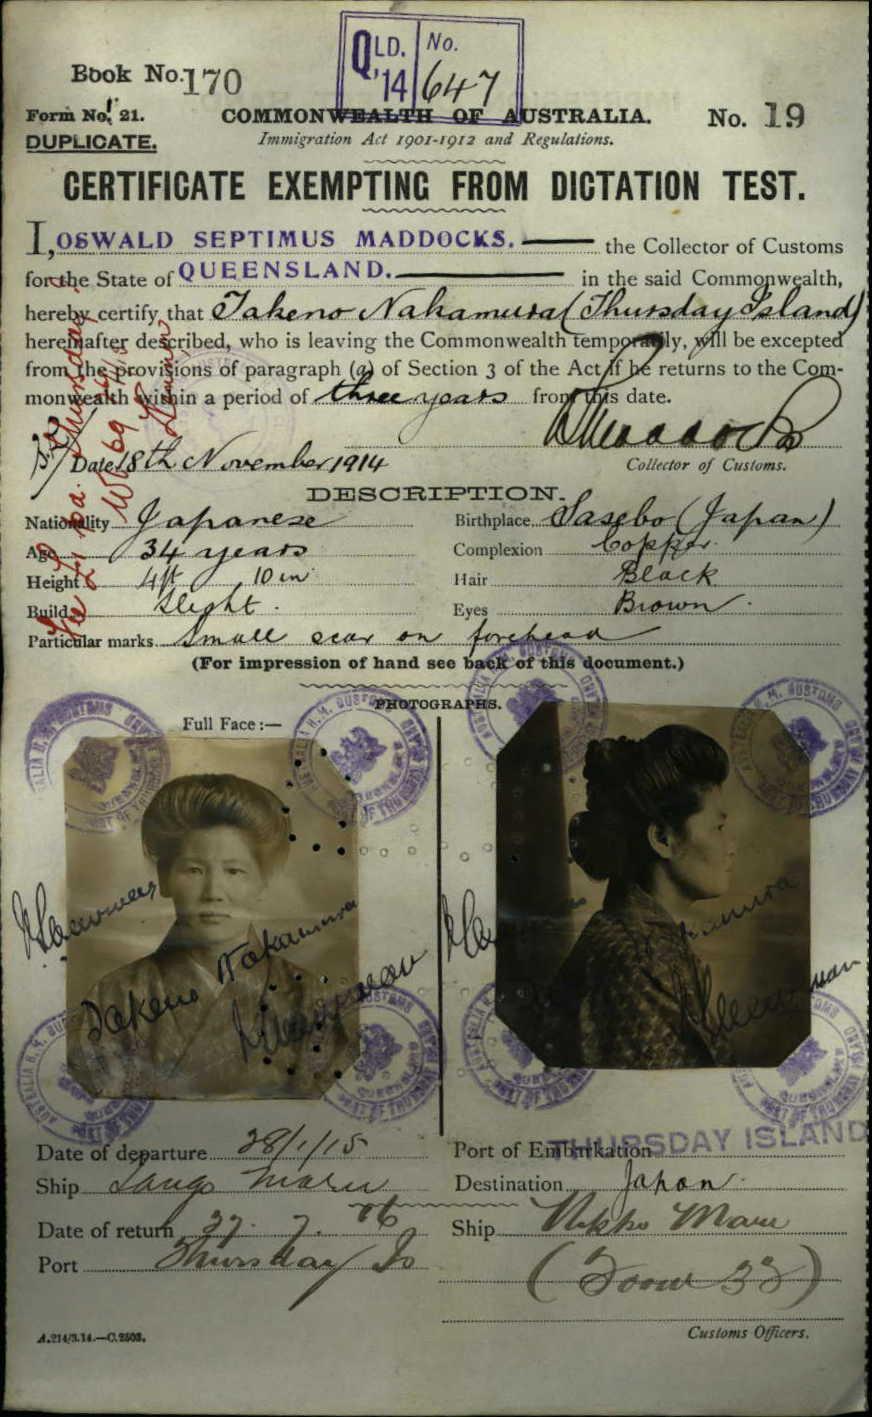 QLD. No.
'14 647
Book No. 170
Form No. 21.
COMMONWEALTH OF AUSTRALIA.
No. 19
DUPLICATE.
Immigration Act 1901-1912 and Regulations.
CERTIFICATE EXEMPTING FROM DICTATION TEST.
I, OSWALD SEPTIMUS MADDOCKS. the Collector of Customs
for the State of QUEENSLAND. in the said Commonwealth,
hereby certify that Takeno Nakamura (Thursday Island)
hereinafter described, who is leaving the Commonwealth temporarily, will be excepted
from the provisions of paragraph (a) of Section 3 of the Act if he returns to the Com-
monwealth within a period of three years from this date.
Date 18th November 1914
Collector of Customs.
DESCRIPTION.
Nationality Japanese Birthplace Sasebo (Japan)
Age 34 years Complexion Copper
Height 4ft 10 in Hair Black
Build Slight. Eyes Brown.
Particular marks Small scar on forehead
(For impression of hand see back of this document.)
PHOTOGRAPHS.
Full Face :—
Takeno Nakamura
Date of departure 28/1/15 Port of Embarkation THURSDAY ISLAND
Ship Maru Destination Japan.
Date of return 27. 7. 16 Ship Nikko Maru
Port Thursday Is
Customs Officers.
A.214/3.14.—C.2503.